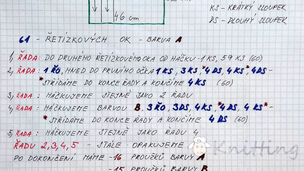 46 cm
KS - KRÁTKÝ SLOUPEK
DS - DLOUHÝ SLOUPEK
61 - ŘETÍZKOVÝCH OK - BARVA A
1, ŘADA: DO DRUHÉHO ŘETÍZKOVÉHO OKA OD HÁČKU - 1 KS, 59 KS (60)
2, ŘADA: 1 ŘO, HNED DO PRVNÍHO OČKA 1 KS, 3 KS, *4 DS, 4 KS, 4 DS -
*STŘÍDÁME DO KONCE ŘADY A KONČÍME 4 KS (60)
3, ŘADA: HÁČKUJEME STEJNĚ JAKO 2 ŘADU
4, ŘADA: HÁČKUJEME BARVOU B, 3 ŘO, 3 DS, 4 KS, *4 DS, 4 KS -
*STŘÍDÁME DO KONCE ŘADY A KONČÍME 4 DS (60)
5, ŘADA: HÁČKUJEME STEJNĚ JAKO 4 ŘADU
ŘADU 2, 3, 4, 5 - STÁLE OPAKUJEME
PO DOKONČENÍ MÁME - 16 PROUŽKŮ BARVY A
- 15 PROUŽKŮ BARVY B
Knitting